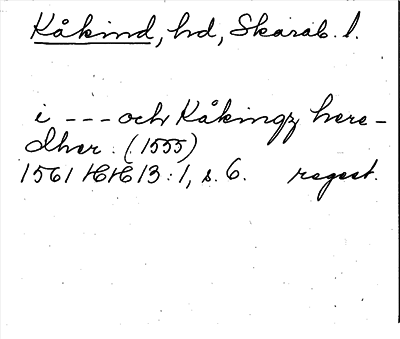 Kåkind, hd, Skarab. l.
i --- och Kåkingz here-
dher. (1555)
1561 HH 13:1, s. 6. regest.